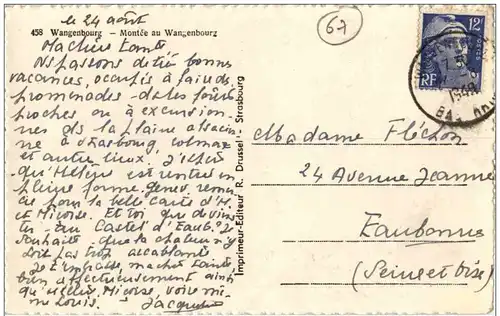 le 24 août
67
458 Wangenbourg – Montée au Wangenbourg
12F
RF
1948
BAS RHIN
Ma chère tante
Ns passons de très bonnes
vacances, occupés à faire des
promenades dates forêts
proches ou à excursion-
ner ds la plaine alsacien-
ne à Strasbourg, Colmar
et autres lieux. J'espère
qu'Hélène est rentrée en
pleine forme.
cie pour la belle carte d'H.
et Nicoise. Et toi que deviens
tu au Castel d'Eaub. ? Je
souhaite que la chaleur n'y
soit pas trop accablante.
Je t'embrasse, ma chère tante
bien affectueusement ainsi
qu'Hélène Nicoise,
me Louis. Jacqueline
Imprimeur-Editeur R. Drussel - Strasbourg
Madame Fléchon
24 Avenue Jeanne
Eaubonne
(Seine et Oise)